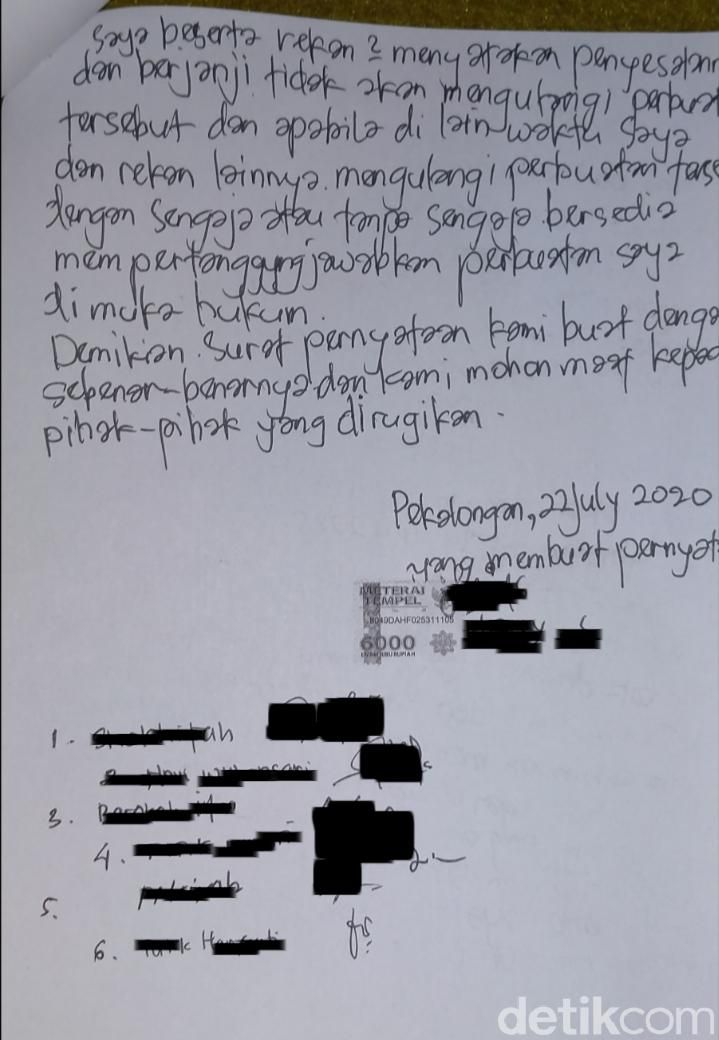 saya beserta rekan 2 menyatakan penyesalan
dan berjanji tidak akan mengulangi perbuat
tersebut dan apabila di lain waktu saya
dan rekan lainnya mengulangi perbuatan terse
dengan sengaja atau tanpa sengaja bersedia
mempertanggungjawabkan perbuatan saya
di muka hukum.
Demikian surat pernyataan kami buat denga
sebenar-benarnya dan kami mohon maaf kepad
pihak-pihak yang dirugikan.
Pekalongan, 22 July 2020
yang membuat pernyat
METERAI
TEMPEL
6000
ENAM RIBU RUPIAH
1.
3.
4.
5.
6.
detikcom